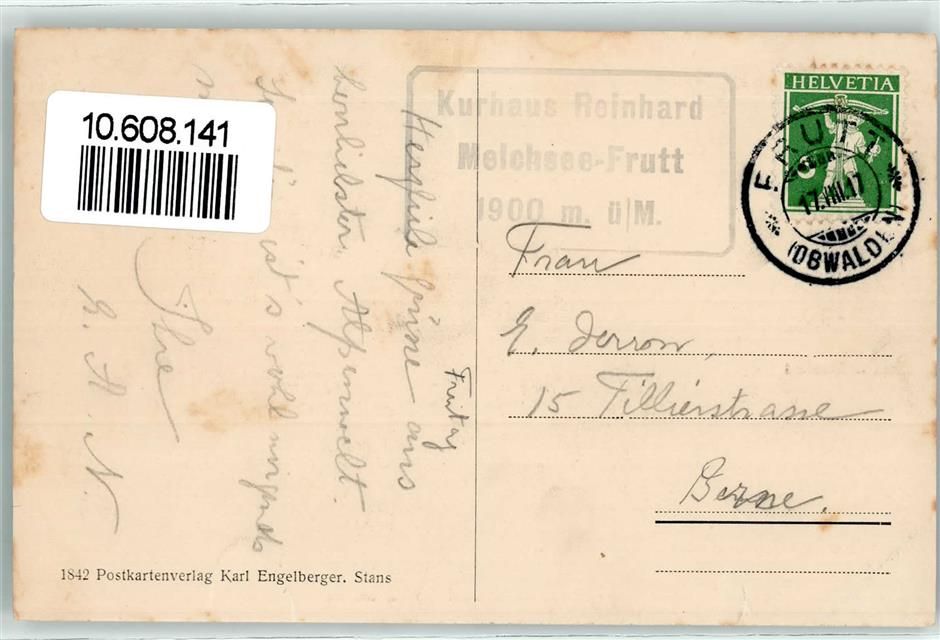 10.608.141
Kurhaus Reinhard
Melchsee-Frutt
1900 m. ü/M.
HELVETIA
FRUTT
17.VIII.17
(OBWALDEN)
Freitag
Herzliche Grüsse aus
herrlichster Alpenwelt.
ist's wohl nirgends
Ihre
Frau
E. Derron,
15 Tillierstrasse
Berne.
1842 Postkartenverlag Karl Engelberger. Stans